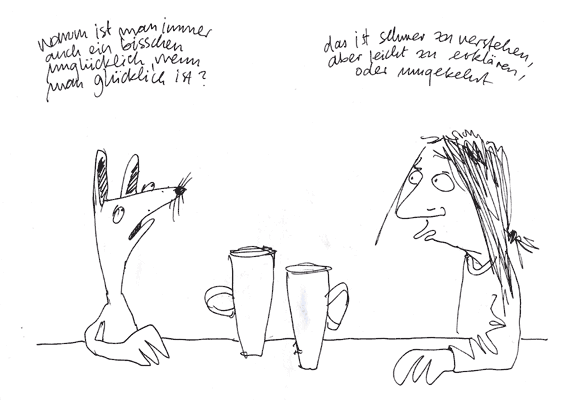 warum ist man immer
auch ein bisschen
unglücklich, wenn
man glücklich ist?
das ist schwer zu verstehen,
aber leicht zu erklären,
oder umgekehrt